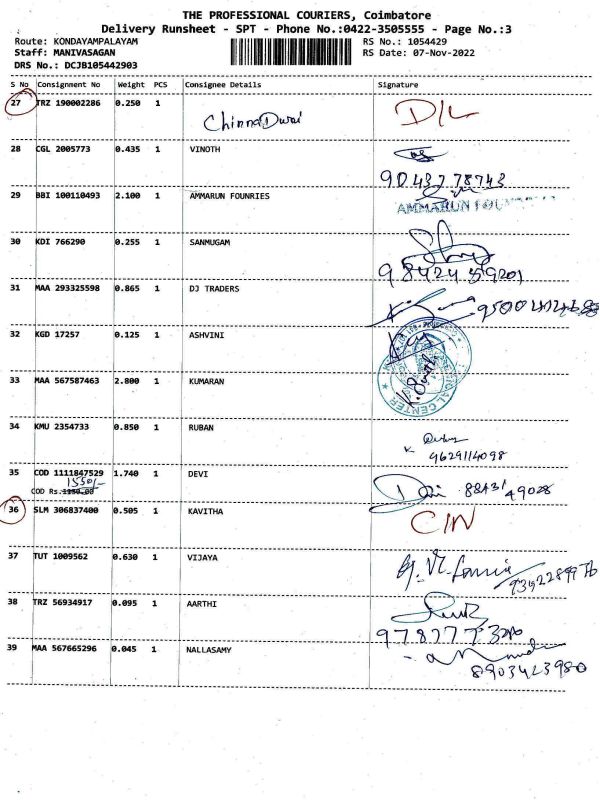 THE PROFESSIONAL COURIERS, Coimbatore
Delivery Runsheet - SPT - Phone No.:0422-3505555 - Page No.:3
Route: KONDAYAMPALAYAM RS No.: 1054429
Staff: MANIVASAGAN RS Date: 07-Nov-2022
DRS No.: DCJB105442903
S No Consignment No Weight PCS Consignee Details Signature
27 TRZ 190002286 0.250 1 D/L
Chinna Durai
28 CGL 2005773 0.435 1 VINOTH
90437 78743
29 BBI 100110493 2.100 1 AMMARUN FOUNRIES
AMMARUN
30 KDI 766290 0.255 1 SANMUGAM
98424 59201
31 MAA 293325598 0.865 1 DJ TRADERS
32 KGD 17257 0.125 1 ASHVINI
33 MAA 567587463 2.800 1 KUMARAN
CENTER
34 KMU 2354733 0.850 1 RUBAN
9629114098
35 COD 1111847529 1.740 1 DEVI
1550/-
COD Rs.1150.00
Devi 88431 49028
36 SLM 306837400 0.505 1 KAVITHA C/N
37 TUT 1009562 0.630 1 VIJAYA
38 TRZ 56934917 0.095 1 AARTHI
39 MAA 567665296 0.045 1 NALLASAMY
8903423980